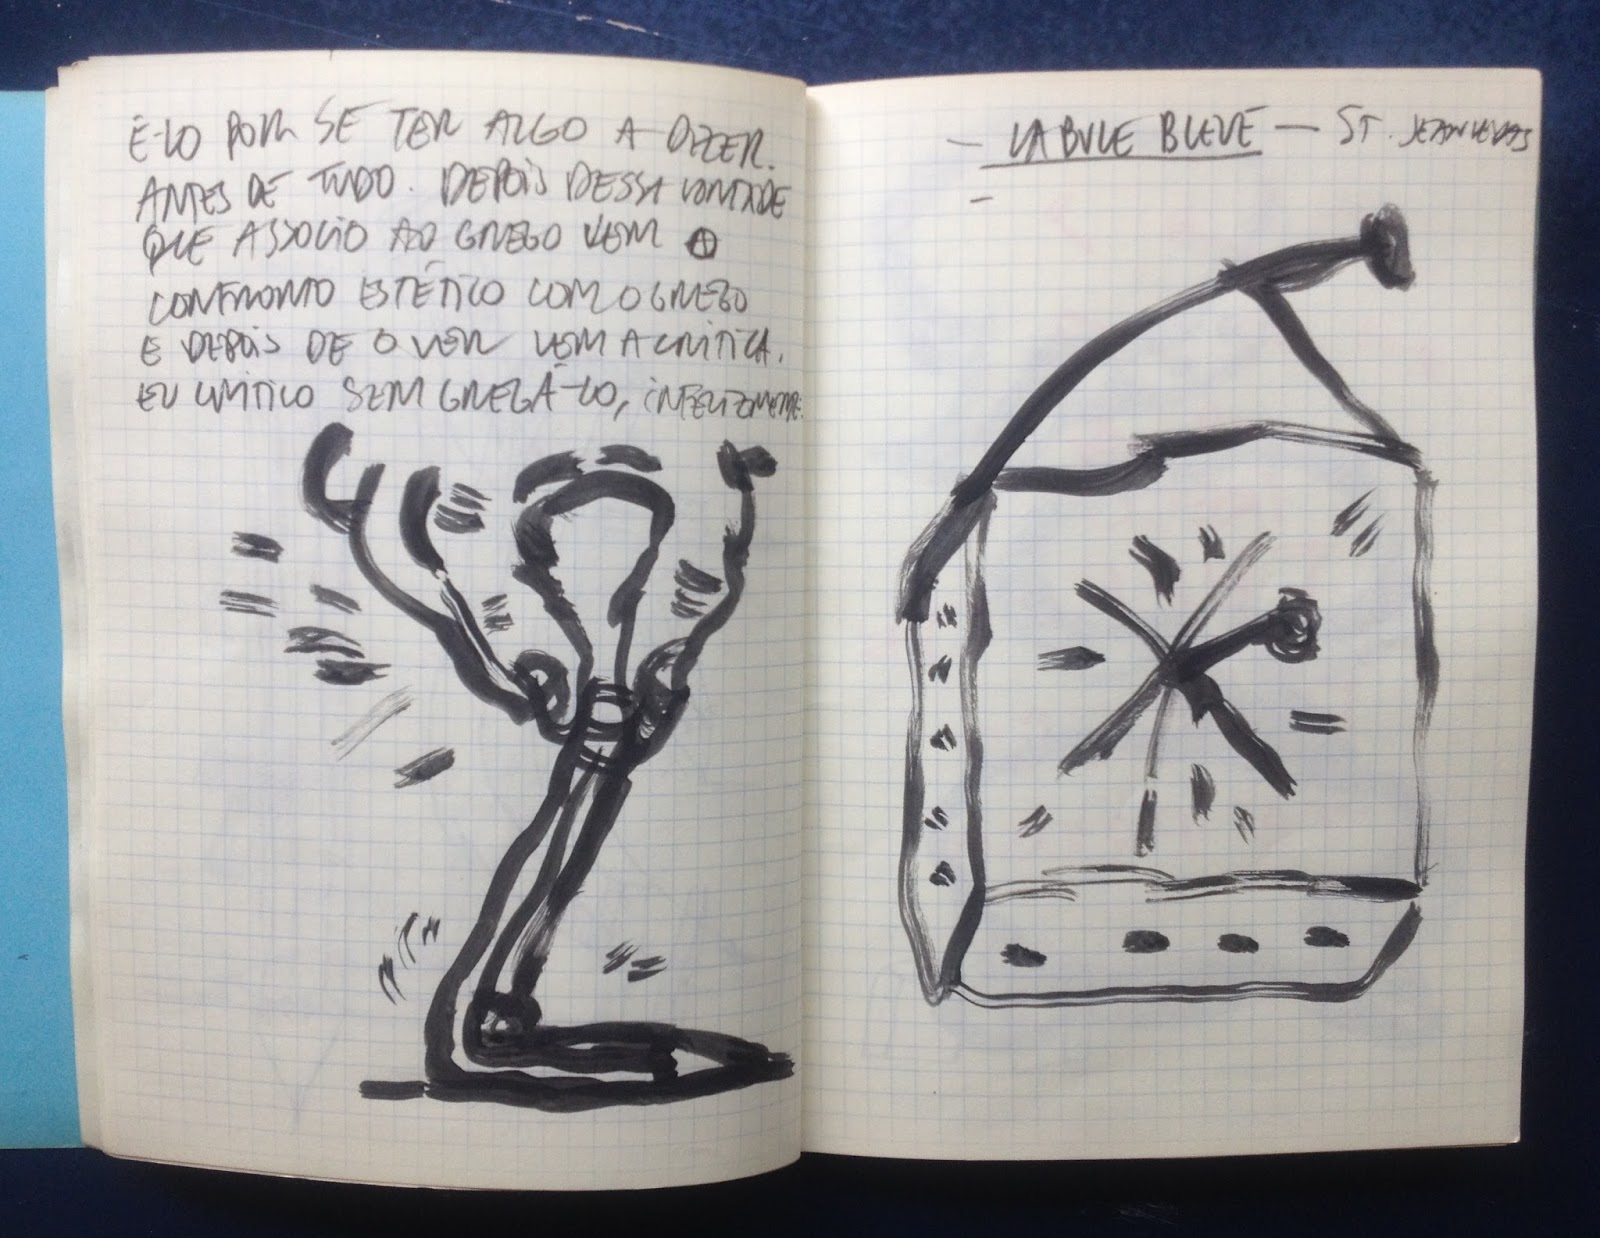 É-LO POR SE TER ALGO A DIZER.
ANTES DE TUDO. DEPOIS DESSA VONTADE
QUE ASSOCIO AO GREGO VEM O
CONFRONTO ESTÉTICO COM O GREGO
E DEPOIS DE O VER VEM A CRÍTICA.
EU CRITICO SEM GREGÁ-LO, INFELIZMENTE.
— LA BULE BLEUE — ST. JEAN